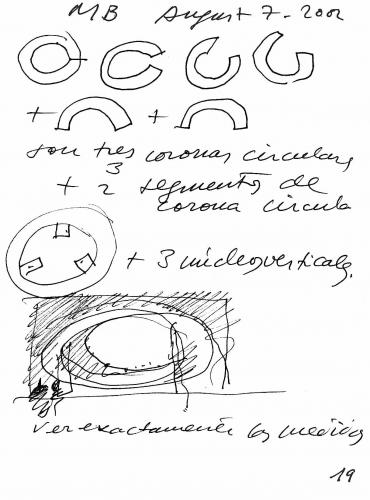 MB August 7-2002
+
+ +
son tres coronas circulares
3
+ 2 segmentos de
corona circula
+ 3 núcleos verticales.
Ver exactamente las medidas
19